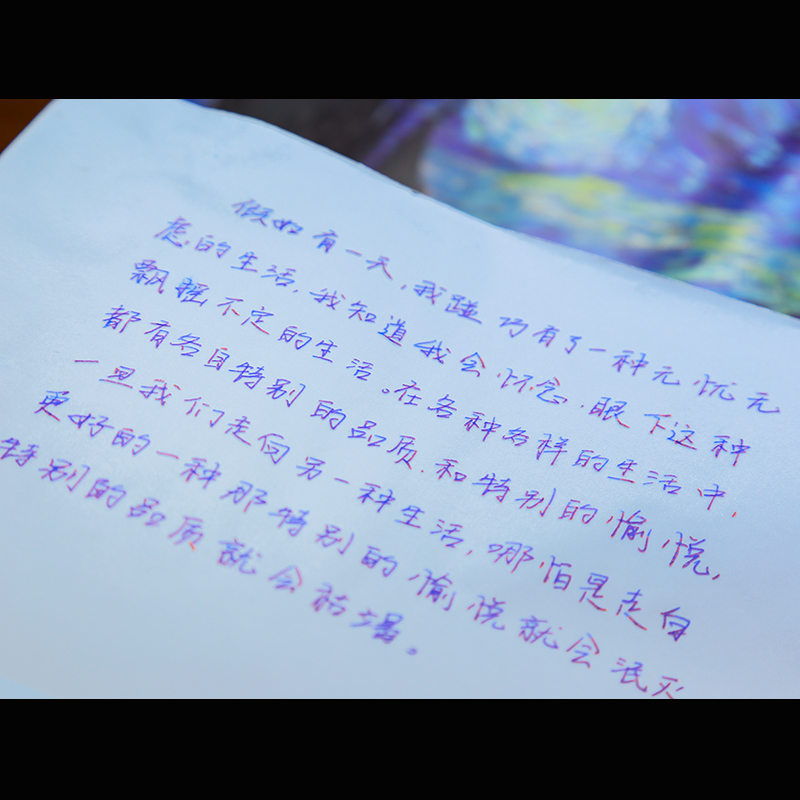 假如有一天，我碰巧有了一种无忧无
虑的生活，我知道我会怀念，眼下这种
飘摇不定的生活。在各种各样的生活中，
都有各自特别的品质，和特别的愉悦，
一旦我们走向另一种生活，哪怕是走向
更好的一种那特别的愉悦就会泯灭
特别的品质就会枯竭。